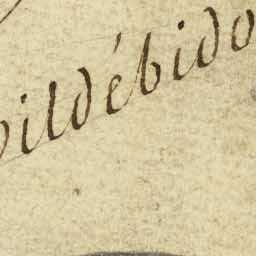 vildébido